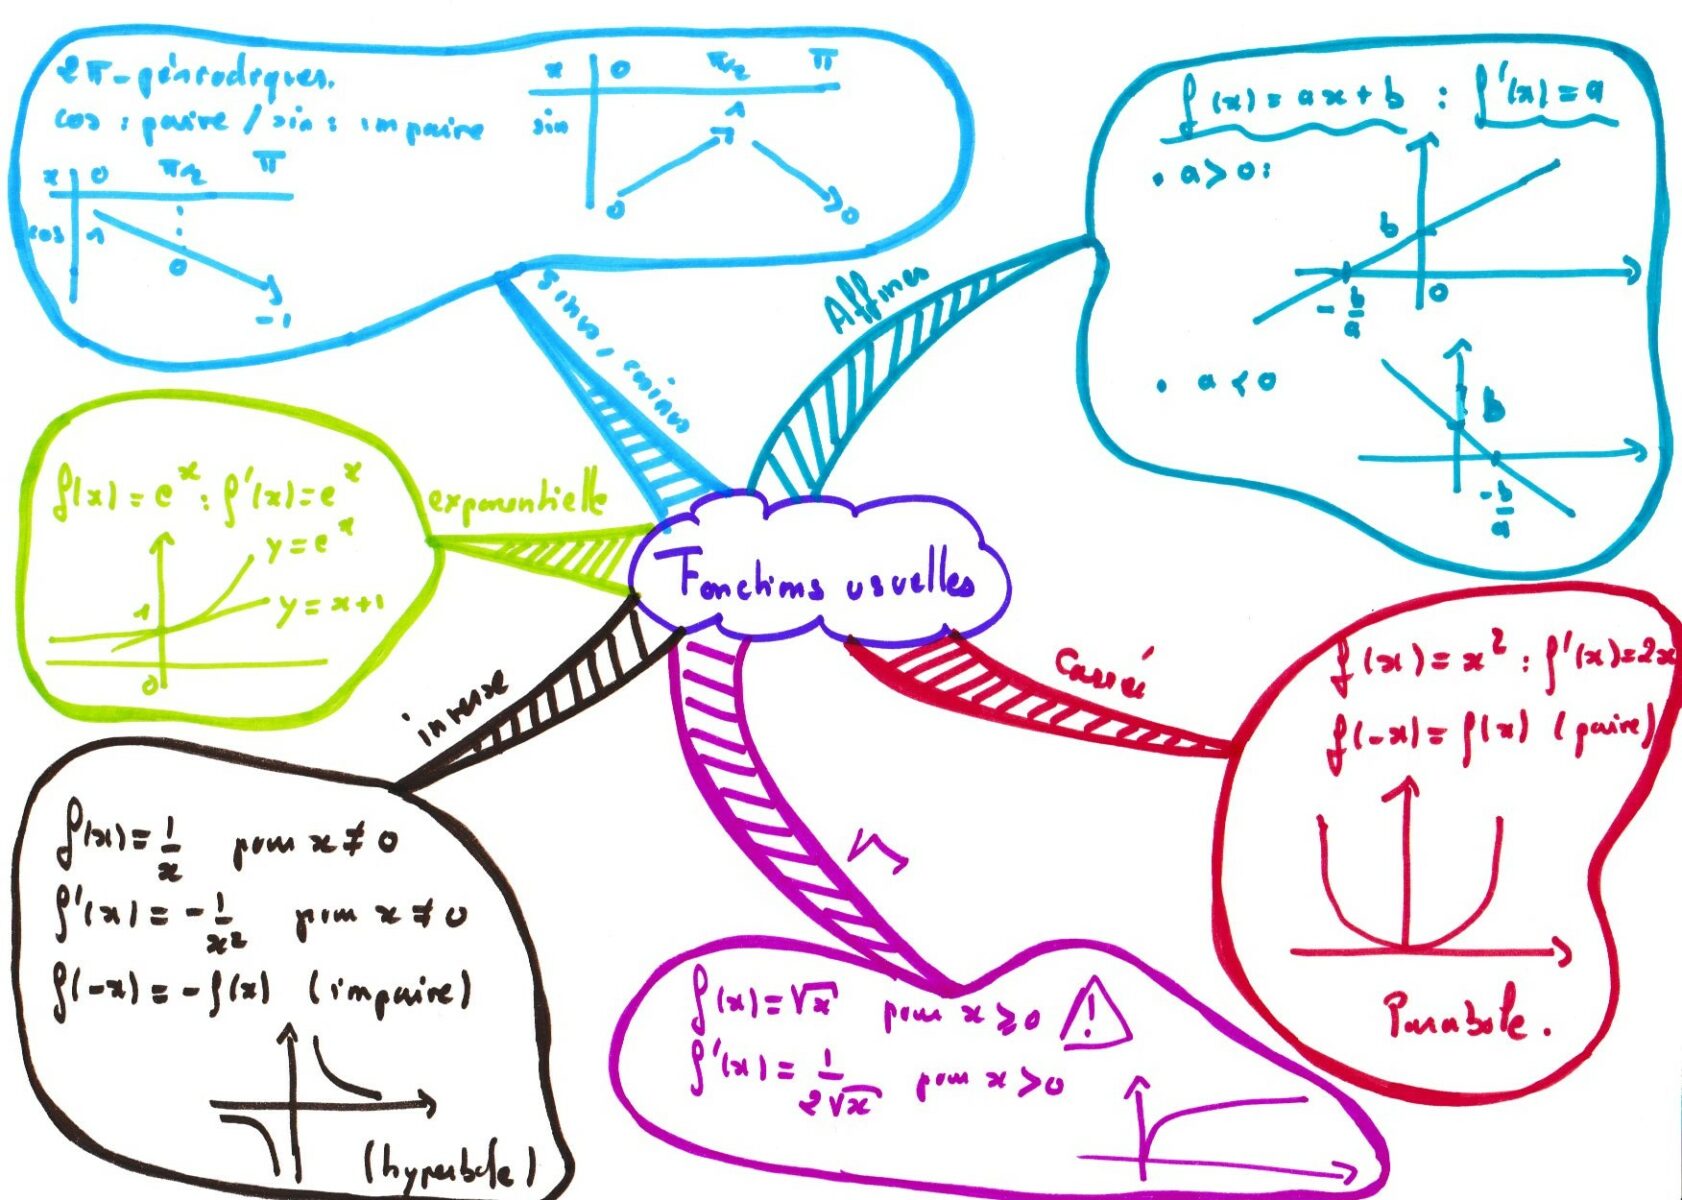 2π-périodiques.
cos : paire / sin : impaire
x 0 π/2 π
sin 0 1 0
x 0 π/2 π
cos 1 0 -1
sinus, cosinus
Affines
f(x) = ax + b : f'(x) = a
• a > 0 :
b
0
-b/a
• a < 0
b
-b/a
exponentielle
f(x) = e^x : f'(x) = e^x
y = e^x
y = x+1
1
0
Fonctions usuelles
Carré
f(x) = x² : f'(x) = 2x
f(-x) = f(x) (paire)
Parabole.
inverse
f(x) = 1/x pour x ≠ 0
f'(x) = -1/x² pour x ≠ 0
f(-x) = -f(x) (impaire)
(hyperbole)
√
f(x) = √x pour x ⩾ 0 !
f'(x) = 1/(2√x) pour x > 0